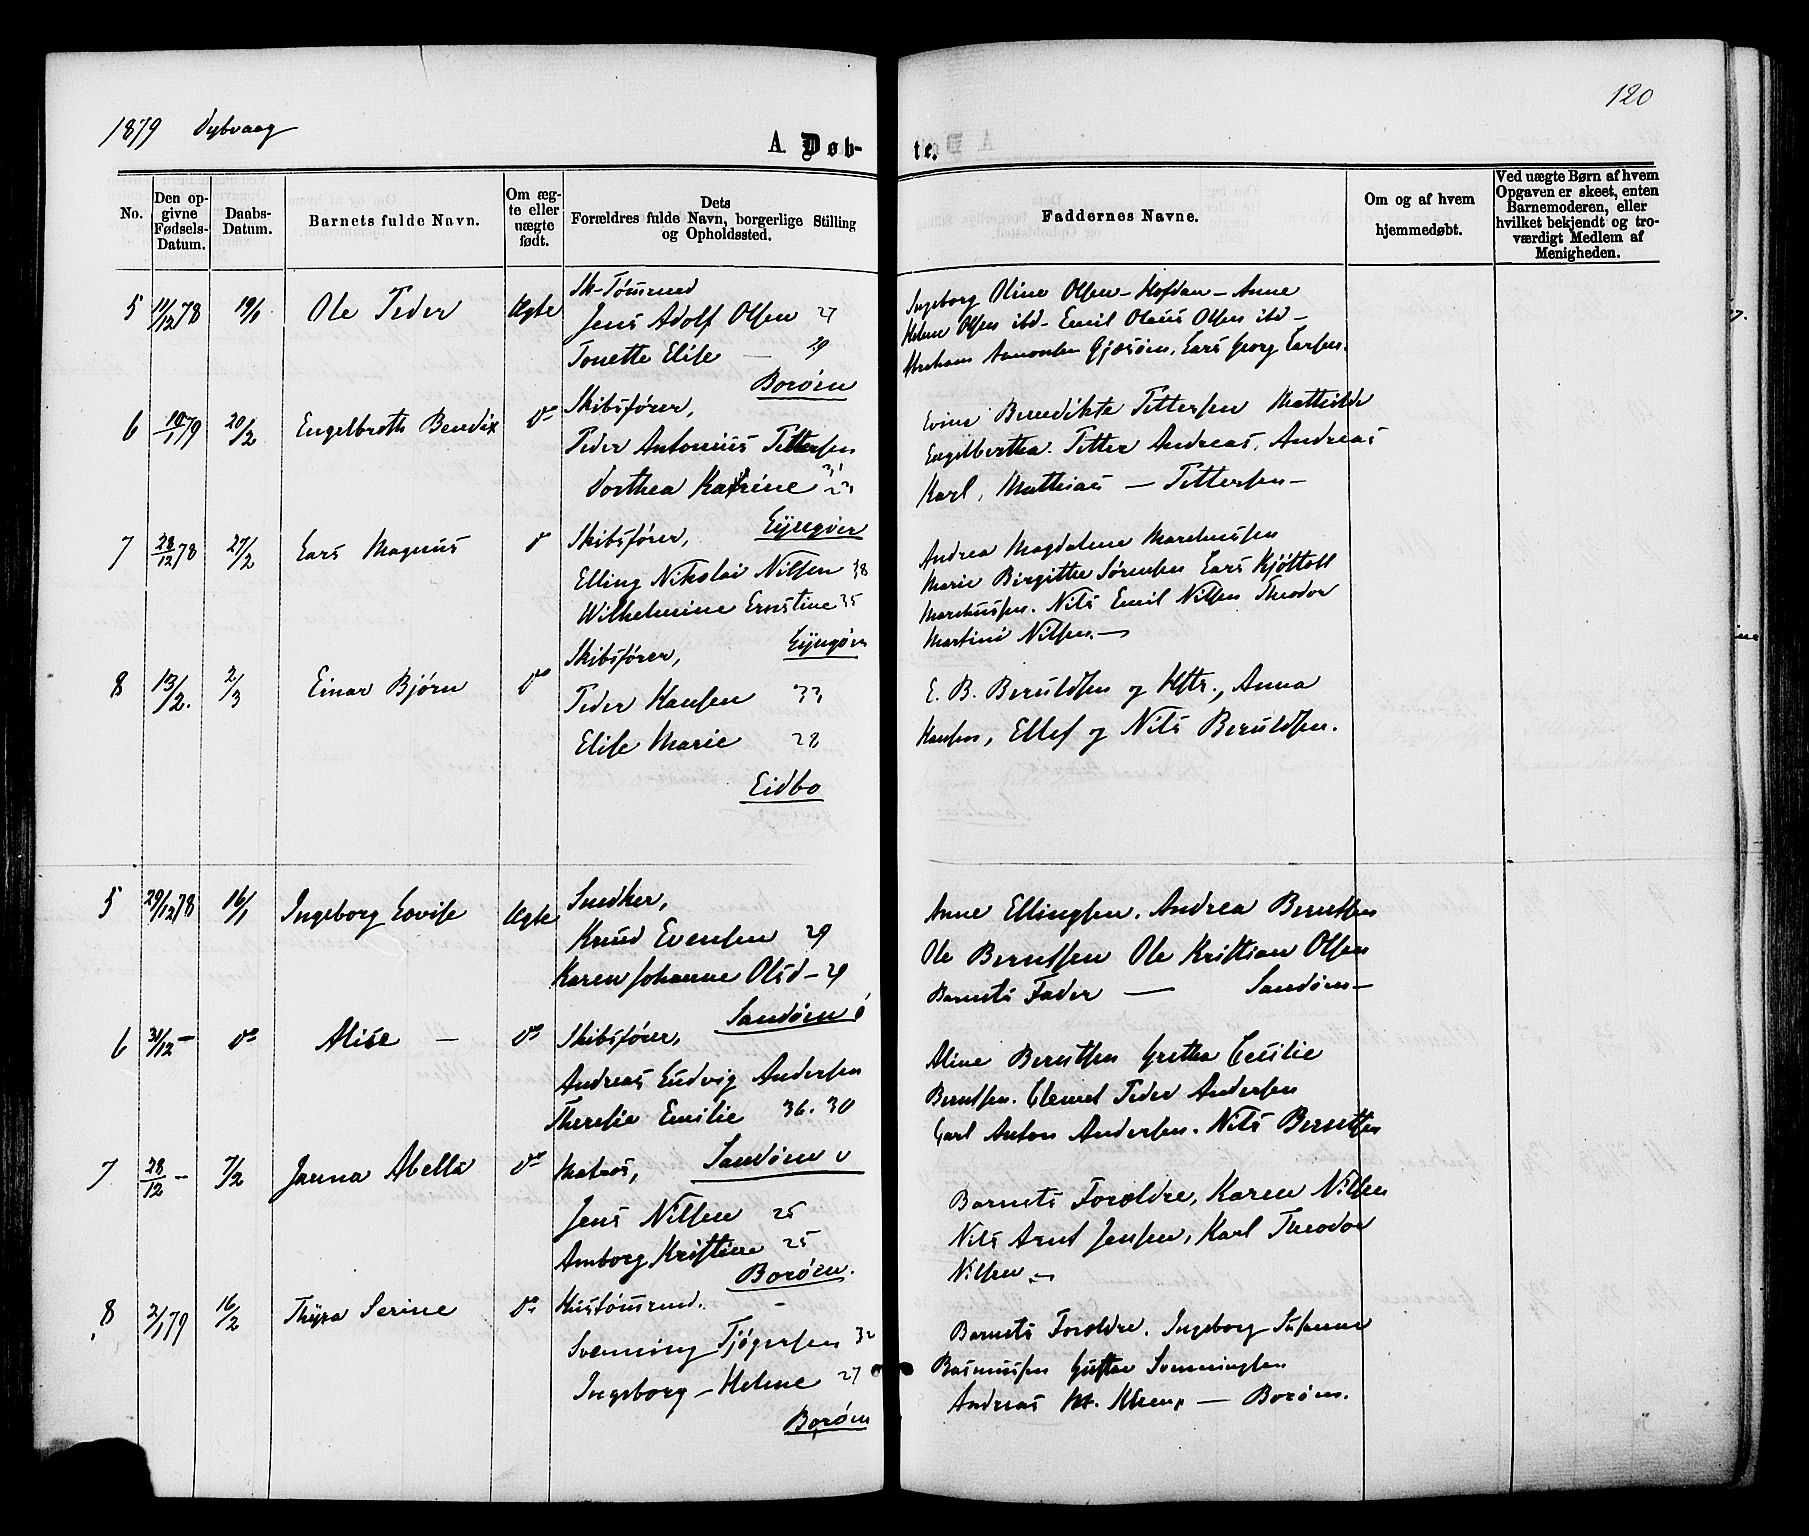 120
1879 Dybvaag
A Døb-
te.
No.
Den op-
givne
Fødsels-
Datum.
Daabs-
Datum.
Barnets fulde Navn.
Om æg-
te eller
uægte
født.
Dets
Forældres fulde Navn, borgerlige Stilling
og Opholdssted.
Faddernes Navne.
Om og af hvem
hjemmedøbt.
Ved uægte Børn af hvem
Opgaven er skeet, enten
Barnemoderen, eller
hvilket bekjendt og tro-
værdigt Medlem af
Menigheden.
5 11/12 78 19/1 Ole Peder Ægte Sk-Tømrmd
Jens Adolf Olsen 27
Tonette Elise — 29
Borøen
Ingeborg Oline Olsen – Hofdan – Anne
Helene Olsen ibd – Emil Olaus Olsen ibd –
Abraham Aamondsen Gjæsøen, Lars Georg Larsen.
6 19/1 79 20/2 Engelbreth Bendix do Skibsfører,
Peder Antonius Pettersen 31
Dorthea Katrine 23
Lyngøer
Evine Benedikte Pettersen Mathilde
Engelbertha. Petter Andreas, Andreas
Karl, Mathias — Pettersen –
7 28/12 78 27/2 Lars Magnus do Skibsfører,
Elling Nikolai Nilsen 38
Wilhelmine Ernstine 35
Lyngøer
Andrea Magdalene Marchussen
Marie Birgithe Sørensen Lars Kjøttoll
Marchussen. Nils Emil Nilsen Theodor
Martini Nilsen. —
8 13/2. 2/3 Einar Bjørn do Skibsfører,
Peder Hansen 33
Elise Marie 28
Eidbo
E. B. Beruldsen og Hstr., Anna
Hansen, Ellef og Nils Beruldsen.
5 29/12 78 16/1 Ingeborg Lovise Ægte Snedker,
Knud Evensen 29
Karen Johanne Olsd – 29
Sandøen
Anne Ellingsen. Andrea Berntsen
Ole Berntsen Ole Kristian Olsen
Barnets Fader — Sandøen –
6 31/12 – do Alise – do Skibsfører,
Andreas Ludvig Andersen
Theresia Emilie 36. 30
Sandøen
Aline Berntsen Grethe Cecilie
Berntsen. Clemet Peder Andersen
Carl Anton Andersen. Nils Berntsen
7 28/12 – 7/2 Janna Abella do Matros,
Jens Nilsen 25
Amborg Kristine 25
Borøen.
Barnets Foroldre, Karen Nilsen
Nils Arnt Jensen, Karl Theodor
Nilsen. —
8 2/1 79 16/2 Thyra Serine do Hustømrmd.
Svenning Tjøgersen 32
Ingeborg – Helene 27
Borøen
Barnets Foroldre. Ingeborg Susanne
Rasmussen Gustav Svenningsen
Andreas M. — Borøen.